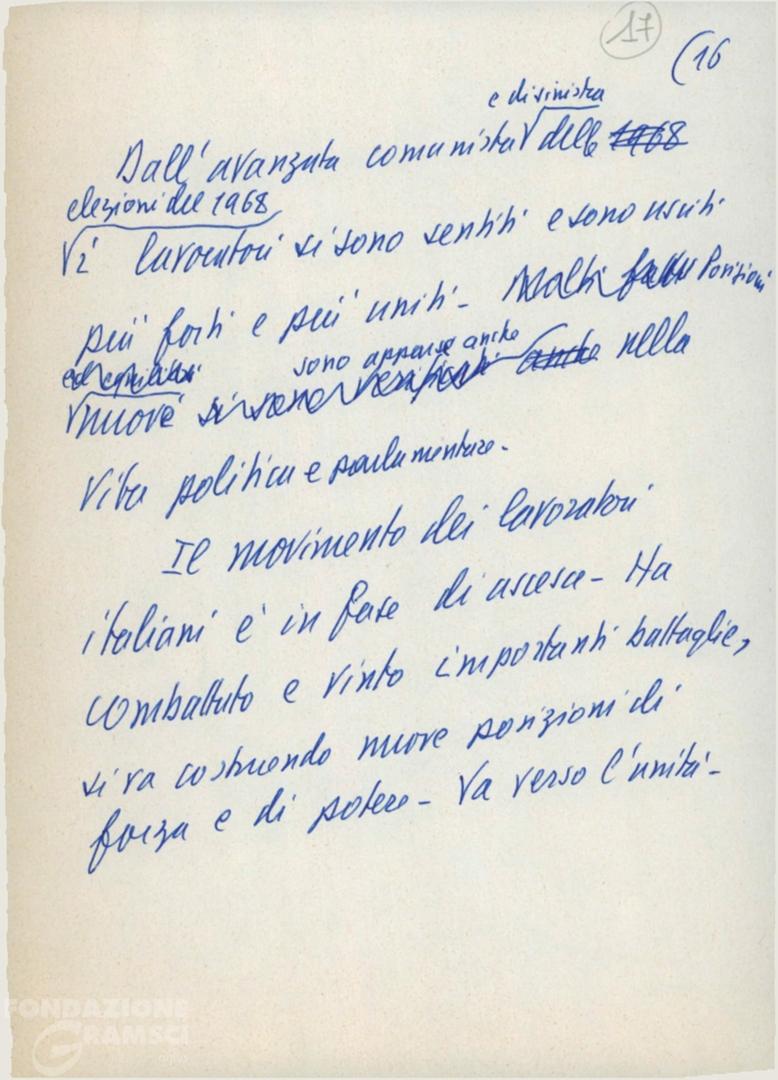 17
(16
e di sinistra
Dall'avanzata comunista √ delle 1968
elezioni del 1968
√ i lavoratori si sono sentiti e sono usciti
più forti e più uniti - Molti fatti Posizioni
sono apparse anche
√ nuove si sono verificati anche nella
vita politica e parlamentare.
Il movimento dei lavoratori
italiani è in fase di ascesa - Ha
combattuto e vinto importanti battaglie,
si va costruendo nuove posizioni di
forza e di potere - Va verso l'unità -
FONDAZIONE
GRAMSCI